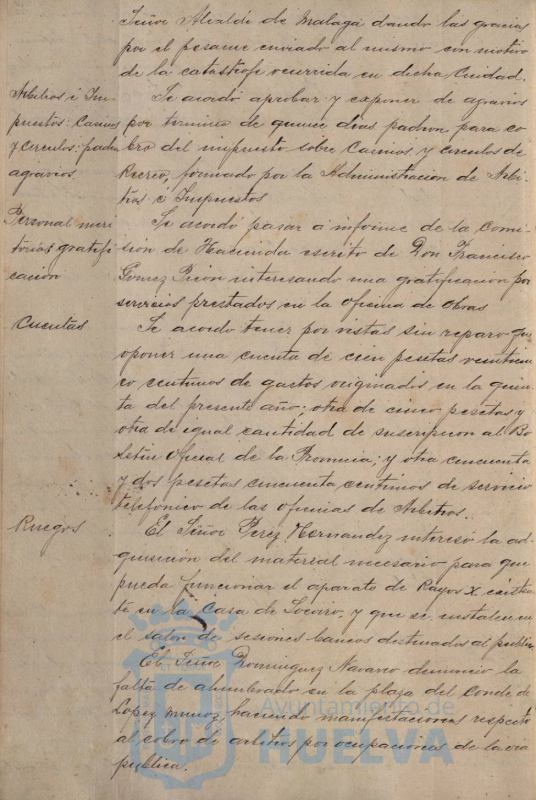 Señor Alcalde de Malaga dando las gracias
por el pesame enviado al mismo con motivo
de la catastrofe ocurrida en dicha Ciudad.
Arbitrios é Im-
puestos: Casinos
y circulos: padron
agravios
Se acordó aprobar y exponer de agravios
por termino de quince dias padron para co-
bro del impuesto sobre Casinos y circulos de
Recreo, formado por la Administracion de Arbi-
trios é Impuestos
Personal meri
torias gratifi
cacion
Se acordó pasar a informe de la Comi-
sion de Hacienda escrito de Don Francisco
Gomez interesando una gratificacion por
servicios prestados en la Oficina de Obras
Cuentas
Se acordo tener por vistas sin reparo que
oponer una cuenta de cien pesetas veinticin
co centimos de gastos originados en la quin-
ta del presente año; otra de cinco pesetas y
otra de igual cantidad de suscripcion al Bo-
letin Oficial de la Provincia; y otra cincuenta
y dos pesetas cincuenta centimos de servicio
telefonico de las oficinas de Arbitrios.
Ruegos
El Señor Perez Hernandez intereso la ad-
quisicion del material necesario para que
pueda funcionar el aparato de Rayos X existen
te en la Casa de Socorro, y que se instalen en
el salon de sesiones bancos destinados al publico
El Señor Dominguez Navarro denuncio la
falta de alumbrado en la plaza del Conde de
Lopez Muñoz, haciendo manifestaciones respecto
al cobro de arbitrios por ocupaciones de la via
publica.
Ayuntamiento de
HUELVA